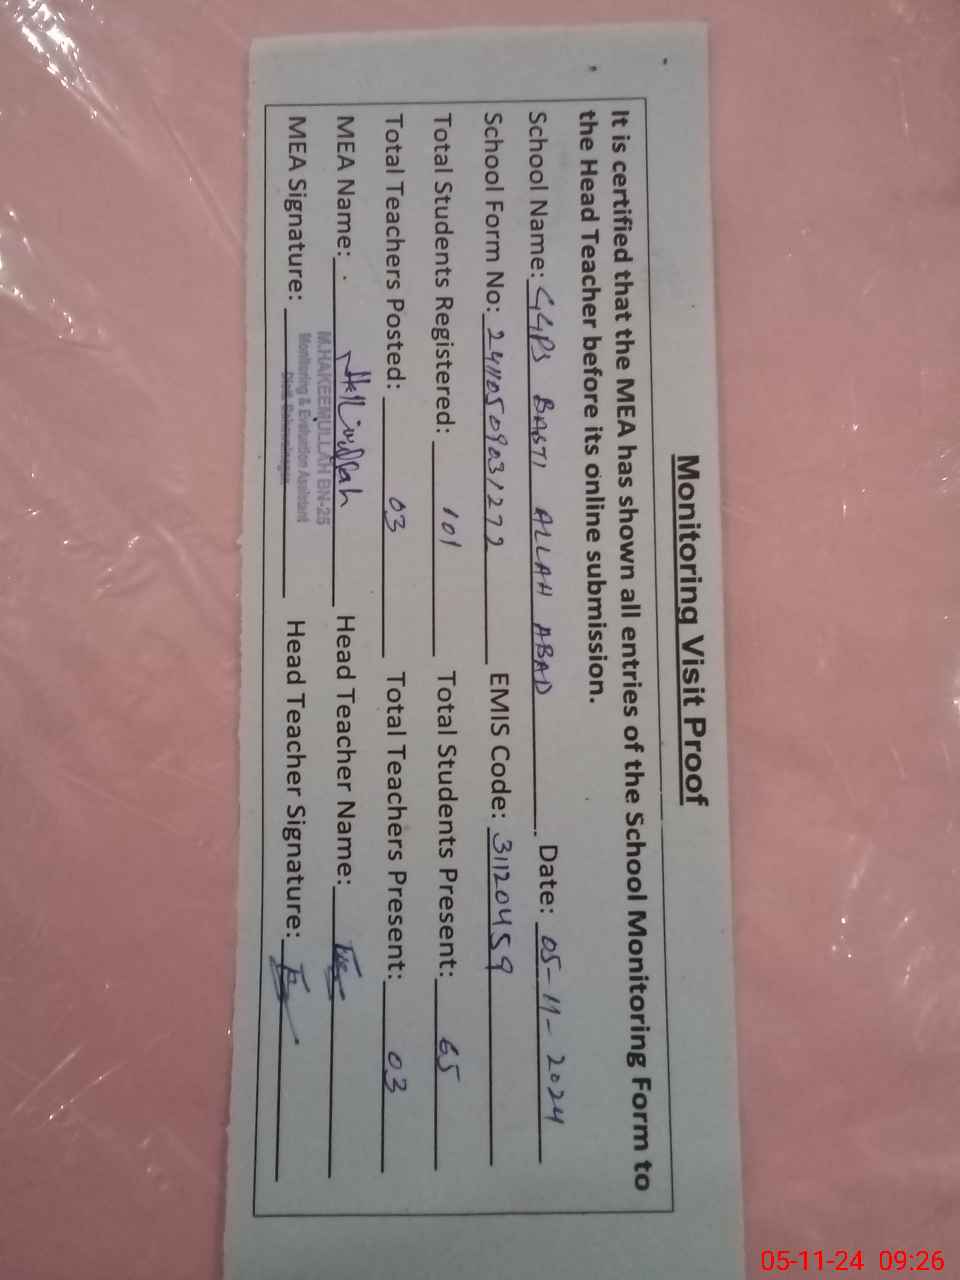 Monitoring Visit Proof
It is certified that the MEA has shown all entries of the School Monitoring Form to
the Head Teacher before its online submission.
School Name: GGPS BASTI ALLAH ABAD Date: 05-11-2024
School Form No: 24110509031272 EMIS Code: 31120459
Total Students Registered: 101 Total Students Present: 65
Total Teachers Posted: 03 Total Teachers Present: 03
MEA Name: Head Teacher Name:
M.HAKEEMULLAH BN-25
Monitoring & Evaluation Assistant
MEA Signature: Head Teacher Signature:
05-11-24 09:26